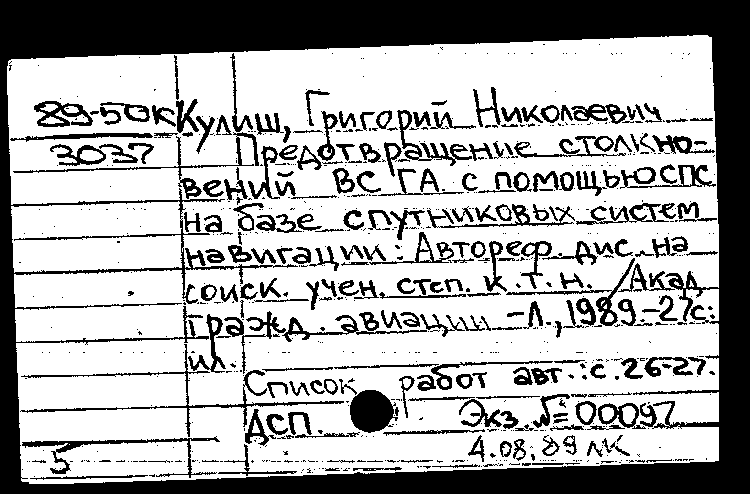 89-50к Кулиш, Григорий Николаевич
3037 Предотвращение столкно-
вений ВС ГА с помощью СПС
на базе спутниковых систем
навигации: Автореф. дис. на
соиск. учен. степ. к.т.н. / Акад.
гражд. авиации -Л., 1989.-27с.:
ил.
Список работ авт.: с.26-27.
ДСП. Экз. №=00097
5 4.08.89 ЛК